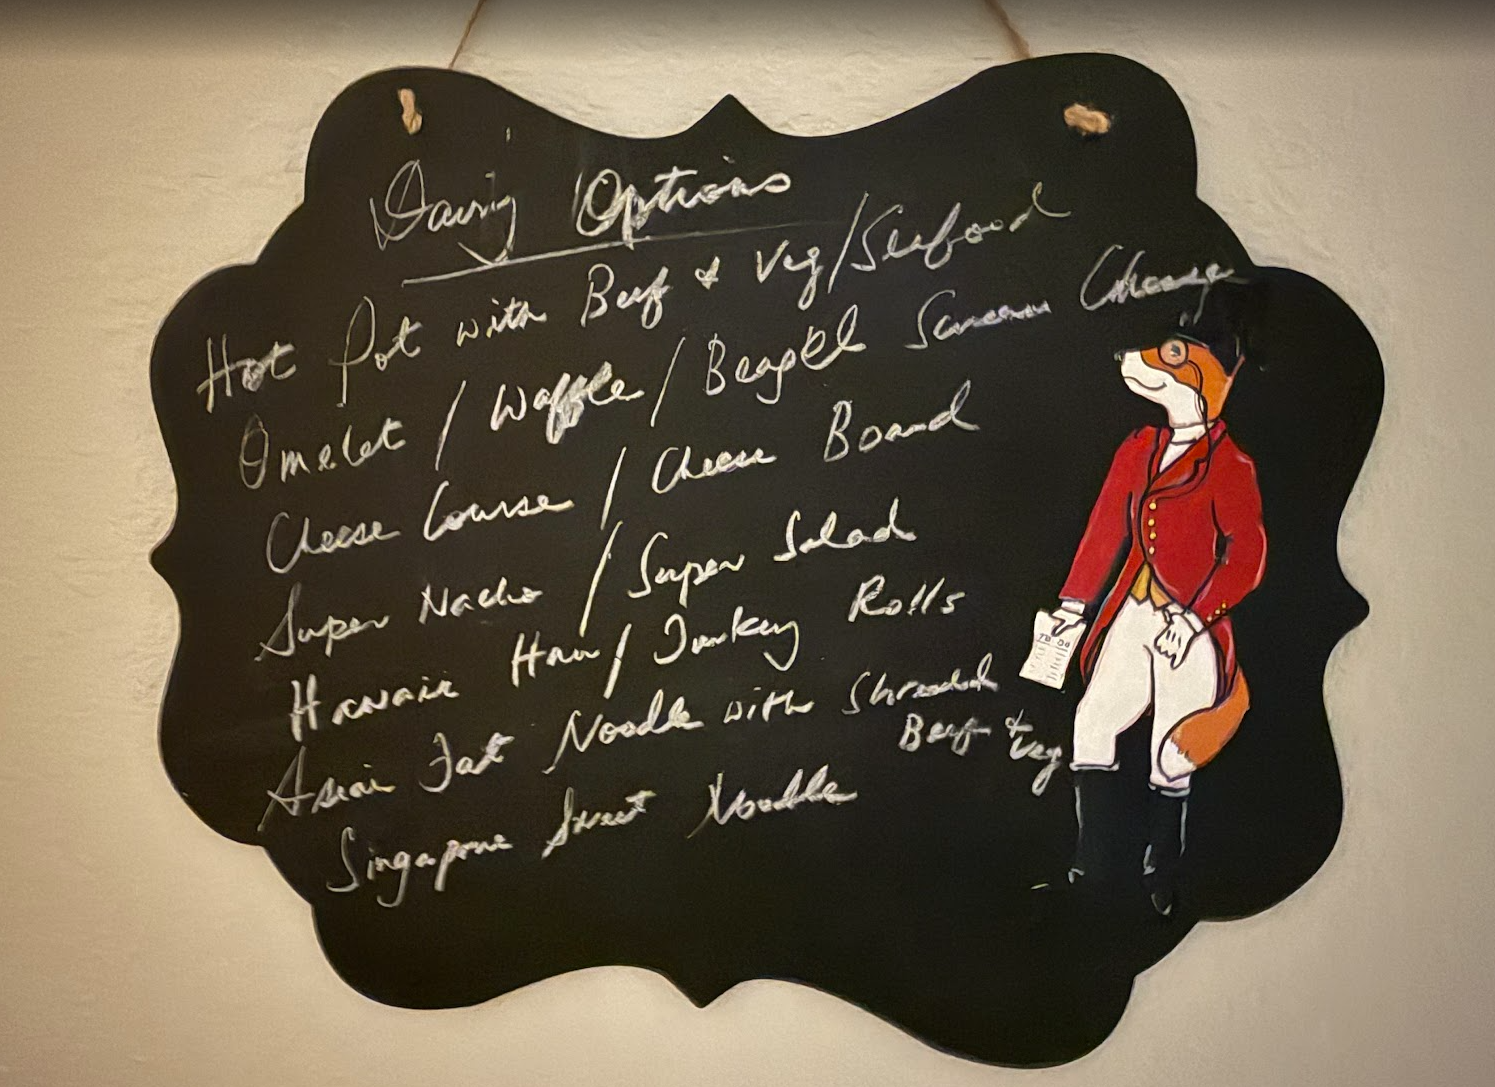 Dairy Options
Hot Pot with Beef & Veg/Seafood
Omelet / Waffle / Cheese
Cheese Course / Cheese Board
Super Nacho / Super Salad
Hawaii Ham / Turkey Rolls
Asian Fat Noodle with Shredded
Beef & Veg
Singapore Sweet Noodle
TO DO